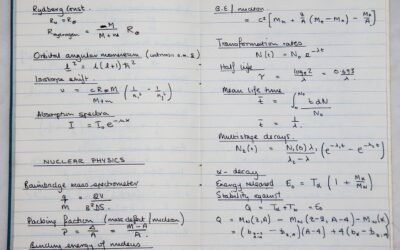 Rydberg Const.
R∞ = R∞
R_hydrogen = M / (M+m) R∞
Orbital angular momentum
l² = l(l+1) ħ²
Isotope shift.
ν = c R∞ M / (M+m) (1/n₁² - 1/n₂²)
Absorption spectra
I = I₀ e^-μx
NUCLEAR PHYSICS
Bainbridge mass spectrometer
Packing fraction (mass defect/nucleon)
P = Δ/A = (M-A)/A
Binding energy of nucleus
B.E / nucleon
= c² [Mₙ + Z/A (
Transformation rates
N(t) = N₀ e^-λt
Half life
τ = log_e 2 / λ = 0.693 / λ
Mean life time
t̄ = ∫ t dN / N₀
t̄ = 1/λ
Multistage decays.
N₂(t) = N₁(0) λ₁ / (λ₂-λ₁) (e^-λ₁t - e^-λ₂t)
α - decay
Energy released E₀ = Tα (1 +
Stability against
Q = Tα + Tb = E₀